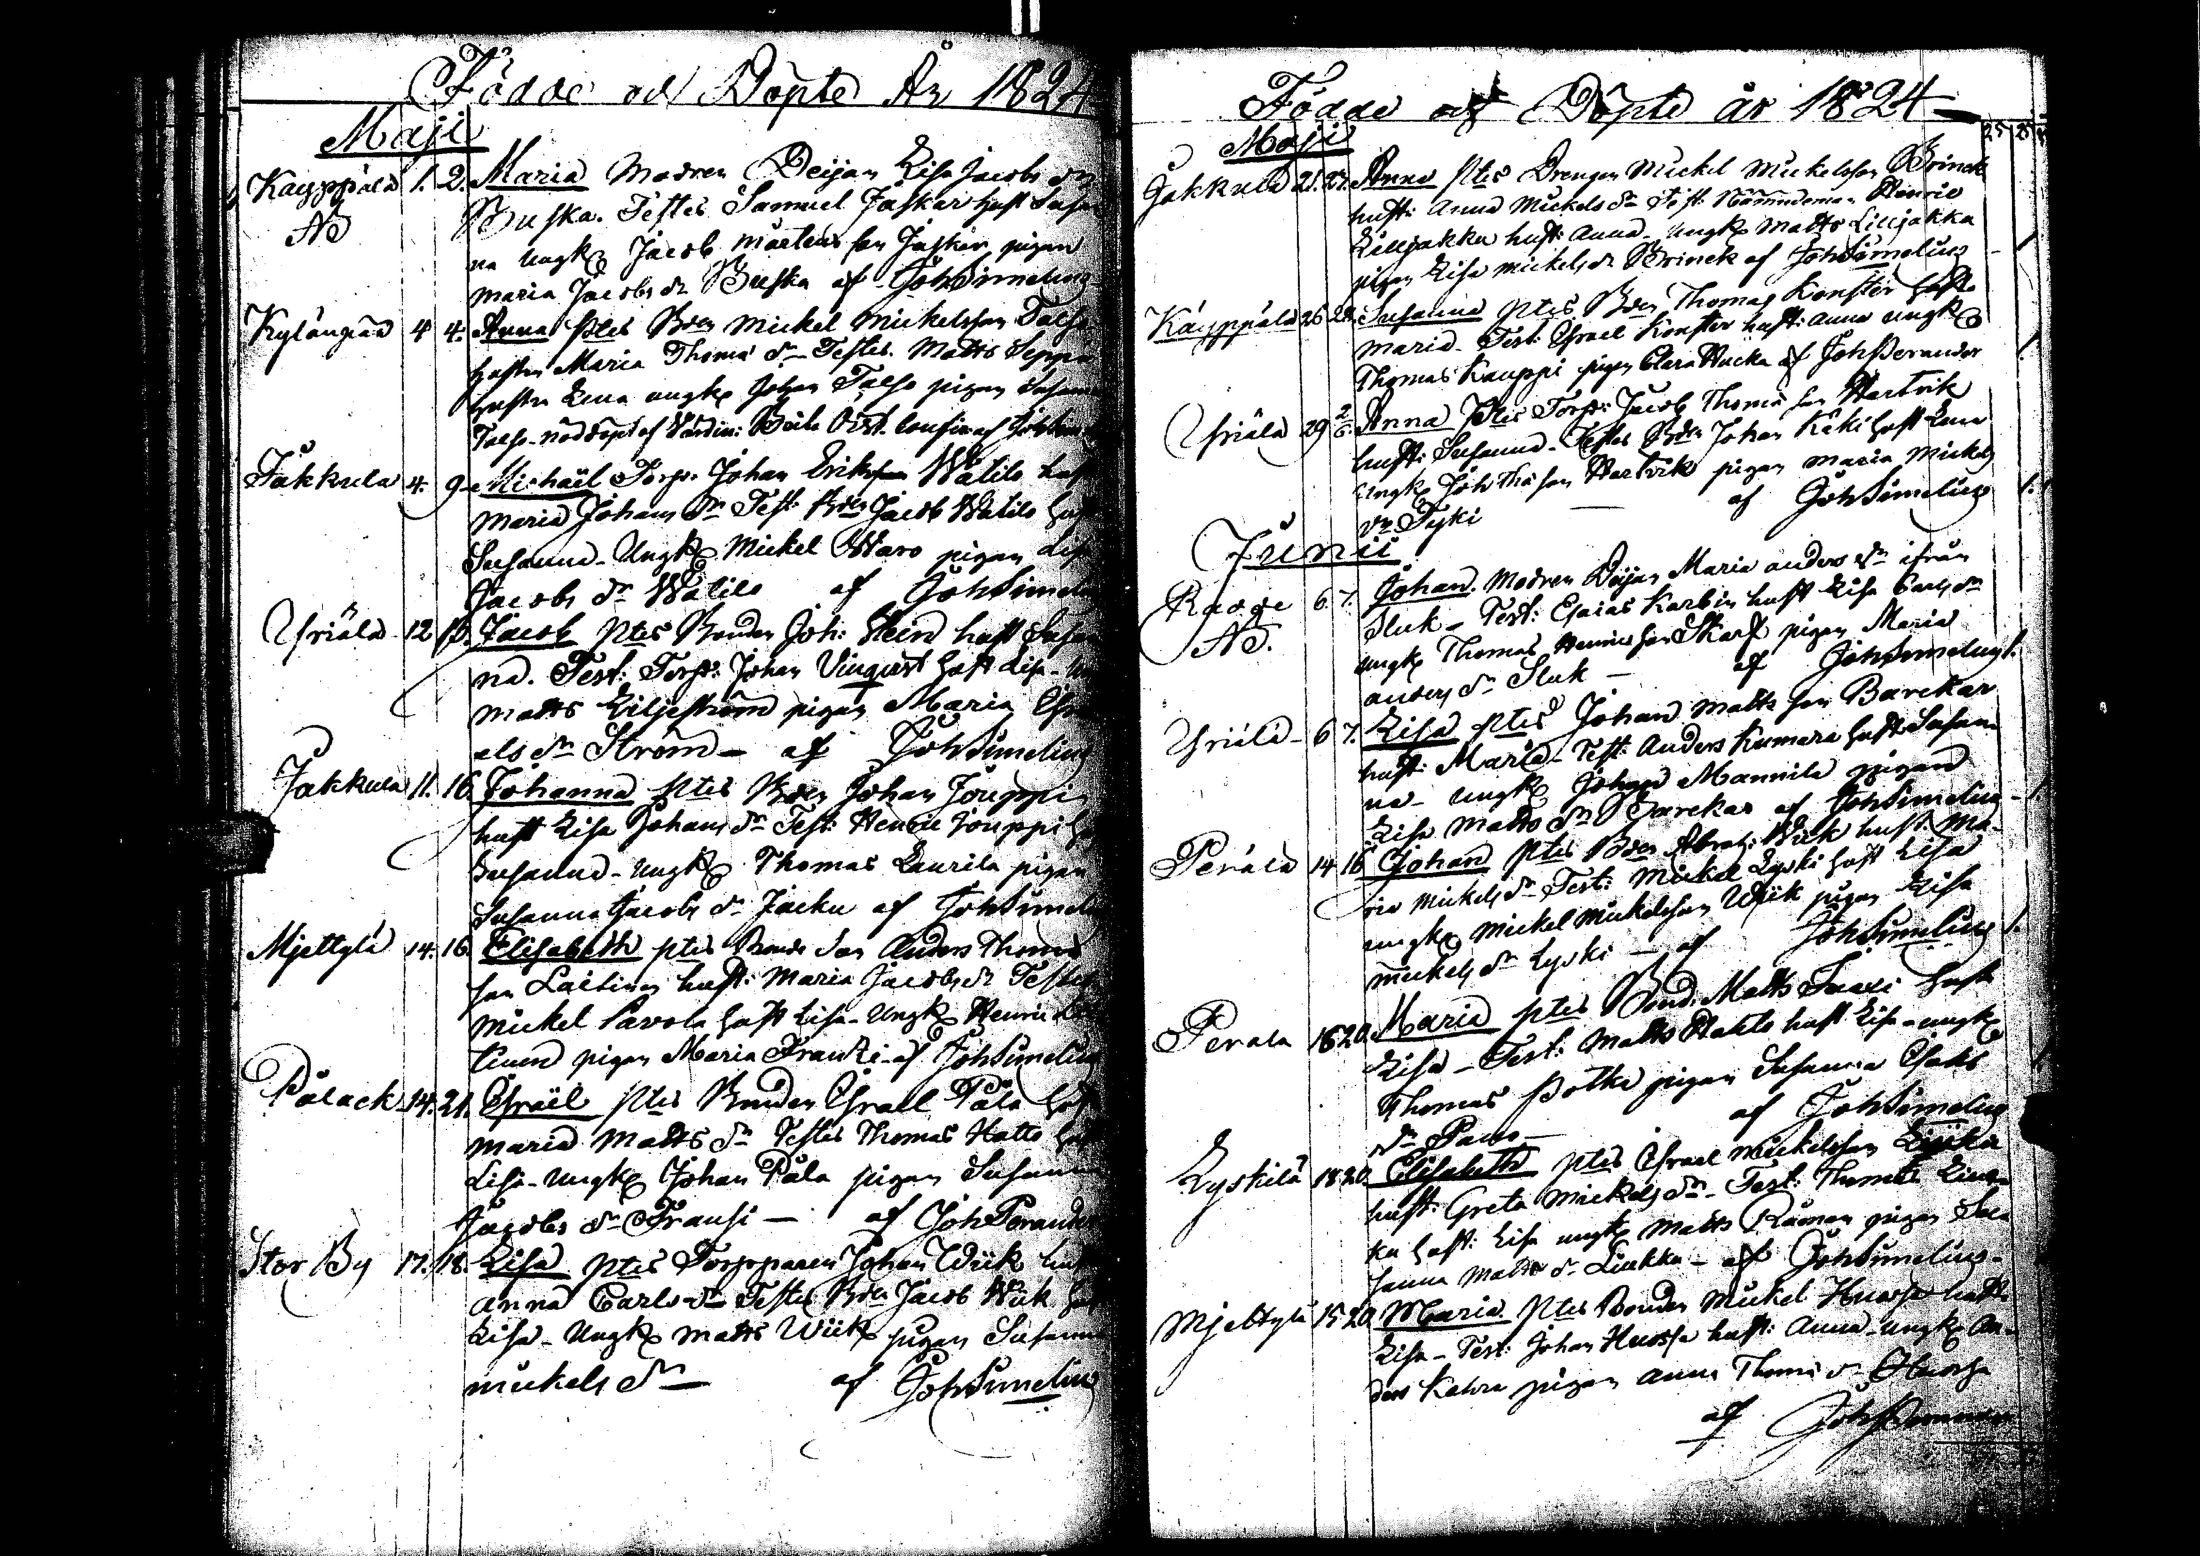 Födde och Döpte År 1824
Maji
Kauppila 1. 2. Maria Modren Deijan Lisa Jacobs dr
No Buska. Testes Samuel Jaskar hust Susan
na ungk Jacob Mårtens son Jaskar pigan
Maria Jacobs dr Buska af Joh Simelius
Kylänpää 4 4. Anna ptes Bden Mickel Mickelsson Talso
hustru Maria Thoms dr Testes. Matts Seppä
hustru Lena ungk Johan Talso pigan
Talso nöddöpt af
Jakkula 4. 9. Michaël Torp. Johan Eriksson Watilo hust
Maria Johans dr Test Bden Jacob Watilo hust
Susanna. Ungk Mickel Waro pigan Lisa
Jacobs dr Watilo af Joh Simelius
Ytriälä 12 Jacob ptes Bonden Joh: Stein hust Susan
na. Test: Torp: Johan Vinqvist hust Lisa
Matts Liljeström pigan Maria Esra
els dr Ström af Joh Simelius
Jakkula 11. 16. Johanna ptes Bden Johan Jouppi
hust Lisa Johans dr Test: Henric Jouppi hust
Susanna ungk Thomas Laurila pigan
Susanna Jacobs dr Jacku af Joh Simelius
Mjettylä 14. 16. Elisabeth ptes Bonde Son Anders Thoms
son Laitinen hust: Maria Jacobs dr Testes
Mickel Pavola hust Lisa Ungk Henric Lai
tinen pigan Maria Frantzi af Joh Simelius
Palack 14. 21. Esraël ptes Bonden Esrael Påla hust
Maria Matts dr Testes Thomas Hatto hust
Lisa Ungk Johan Påla pigan Susanna
Jacobs dr Fransi af Joh Perander
Stor By 17. 18. Lisa ptes Torpparen Johan Wiik hust
Anna Carls dr Testes Bden Jacob Wiik hust
Lisa Ungk Matts Wiik pigan Susanna
Mickels dr af Joh Simelius
Födde och Döpte år 1824
Maji
Jakkula 21. 27. Anna ptes Drengen Mickel Mickelsson Brinck
hust: Anna Mickels dr Test: Nämndeman Henric
Lilljakka hust: Anna Ungk Matts Lilljakka
pigan Lisa Mickels dr Brinck af Joh Simelius
Kauppila 26 28. Susanna ptes Bden Thomas Konster hust
Maria Test: Esrael Konster hust: Anna ungk
Thomas Kauppi pigan Clara Hucka af Joh Perander
Ytriälä 29 2/6. Anna ptes Torp: Jacob Thoms son Hartvik
hust: Susanna Testes Bden Johan Käki hust Lena
ungk Joh Thoms son Hartvik pigan Maria Mickels
dr Tyki af Joh Simelius
Junii
Ruoge 6. 7. Johan. Modren Deijan Maria Anders dr ifrån
No. Sluk Test: Esaias Karbin hust Lisa Carls dr
ungk Thomas Henricsson Skarf pigan Maria
Anders dr Sluk af Joh Simelius
Ytriälä 6 7. Lisa ptes Johan Matts son Barckar
hust: Maria Test: Anders Kumara hust: Susan
na ungk Johan Mannila pigan
Lisa Matts dr Barckar af Joh Simelius
Perälä 14 16 Johan ptes Bden Abrah: Wiik hust: Ma
ria Mickels dr Test: Mickel Lyski hust Lisa
ungk Mickel Mickelsson Wiik pigan Lisa
Mickels dr Lyski af Joh Simelius
Perälä 16 20 Maria ptes Bond: Matts Saxi hust
Lisa Test: Matts Hahto hust: Lisa ungk
Thomas Potka pigan Susanna Esaks
dr Pavo af Joh Simelius
Lyskilä 18 20 Elisabeth ptes Esrael Mickelsson Liukka
hust: Greta Mickels dr Test: Thomas Liuk
ka hust: Lisa ungk Matts Råman pigan Su
sanna Matts dr Liukka af Joh Simelius
Mjettylä 15 20 Maria ptes Bonden Mickel Huossa hust
Lisa Test: Johan Huossa hust: Anna ungk An
ders Kahra pigan Anna Thoms dr Huossa
af Joh Perander